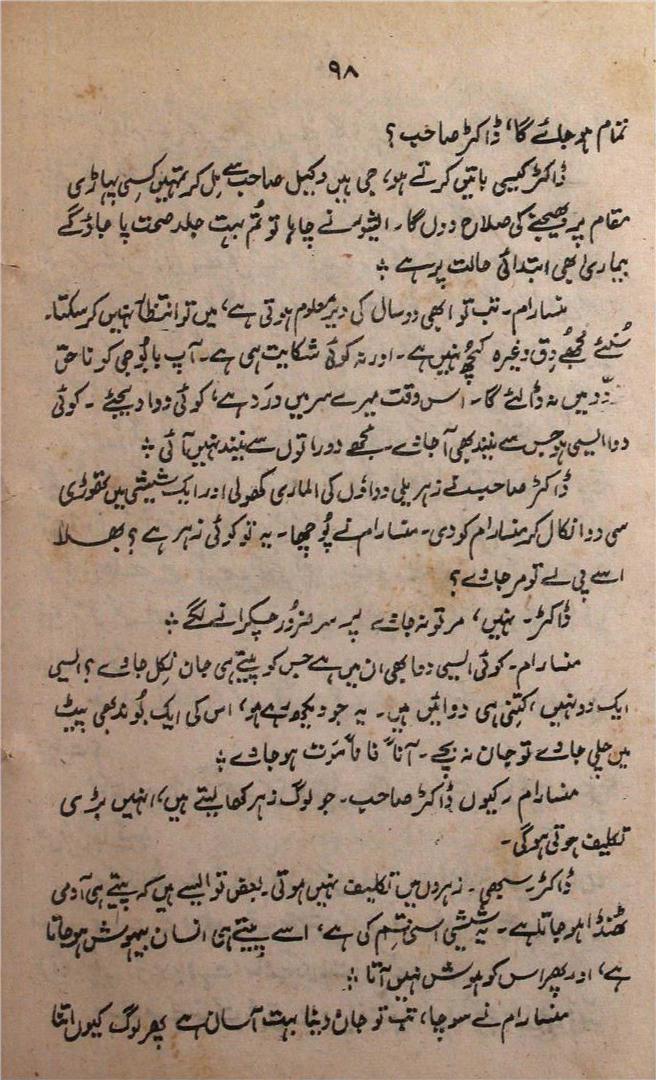 ۹۸
تمام ہو جائے گا، ڈاکٹر صاحب؟
ڈاکٹر کیسی باتیں کرتے ہو، جی میں وکیل صاحب سے مل کر تمہیں کسی پہاڑی
مقام پر بھیجنے کی صلاح دوں گا۔ ایشور نے چاہا تو تُم بہت جلد صحت پا جاؤ گے
بیماری ابھی ابتدائی حالت پر ہے ÷
منسارام۔ تب تو ابھی دو سال کی دیر معلوم ہوتی ہے، میں تو انتظار نہیں کر سکتا۔
سُنئے مجھے دِق وغیرہ کچھ نہیں ہے۔ اور نہ کوئی شکایت ہی ہے۔ آپ بابُو جی کو ناحق
تردّد میں نہ ڈالئے گا۔ اس وقت میرے سر میں درد ہے، کوئی دوا دیجئے۔ کوئی
دوا ایسی ہو جس سے نیند بھی آ جاوے۔ مجھے دو راتوں سے نیند نہیں آئی ÷
ڈاکٹر صاحب نے زہریلی دواؤں کی الماری کھولی اور ایک شیشی میں تھوڑی
سی دوا نکال کر منسارام کو دی۔ منسارام نے پُوچھا۔ یہ تو کوئی زہر ہے؟ بھلا
اسے پی لے تو مر جاوے؟
ڈاکٹر۔ نہیں، مر تو نہ جاوے پر سر ضرُور چکرانے لگے ÷
منسارام۔ کوئی ایسی دوا بھی ان میں ہے جس کو پیتے ہی جان نکل جاوے؟ ایسی
ایک دو نہیں، کتنی ہی دوائیں ہیں۔ یہ جو دیکھ رہے ہو، اس کی ایک بُوند بھی پیٹ
میں چلی جاوے تو جان نہ بچے۔ آناً فاناً مَوت ہو جاوے ÷
منسارام۔ کیوں ڈاکٹر صاحب۔ جو لوگ زہر کھا لیتے ہیں، انہیں بڑی
تکلیف ہوتی ہوگی۔
ڈاکٹر۔ سبھی۔ زہروں میں تکلیف نہیں ہوتی۔ بعض تو ایسے ہیں کہ پیتے ہی آدمی
ٹھنڈا ہو جاتا ہے۔ یہ شیشی اسی قسم کی ہے، اسے پیتے ہی انسان بیہوش ہو جاتا
ہے، اور پھر اس کو ہوش نہیں آتا ÷
منسارام نے سوچا، تب تو جان دینا بہت آسان ہے پھر لوگ کیوں اتنا